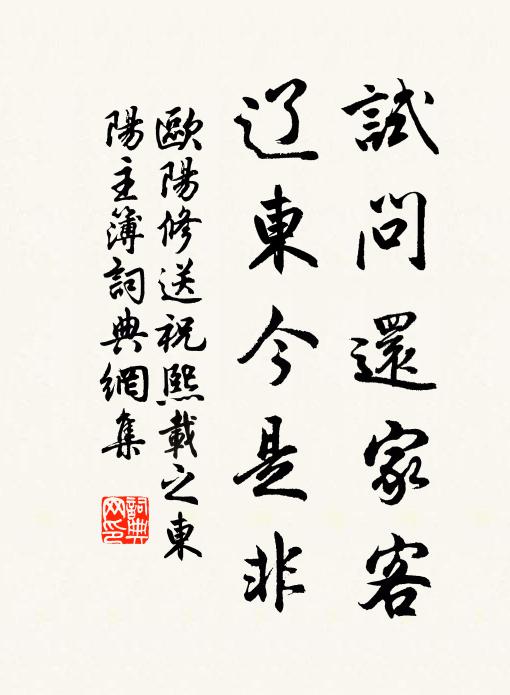 試問還家客
辽東今是非
歐陽修送祝熙載之東
陽主簿詞典網集
詞典
网印